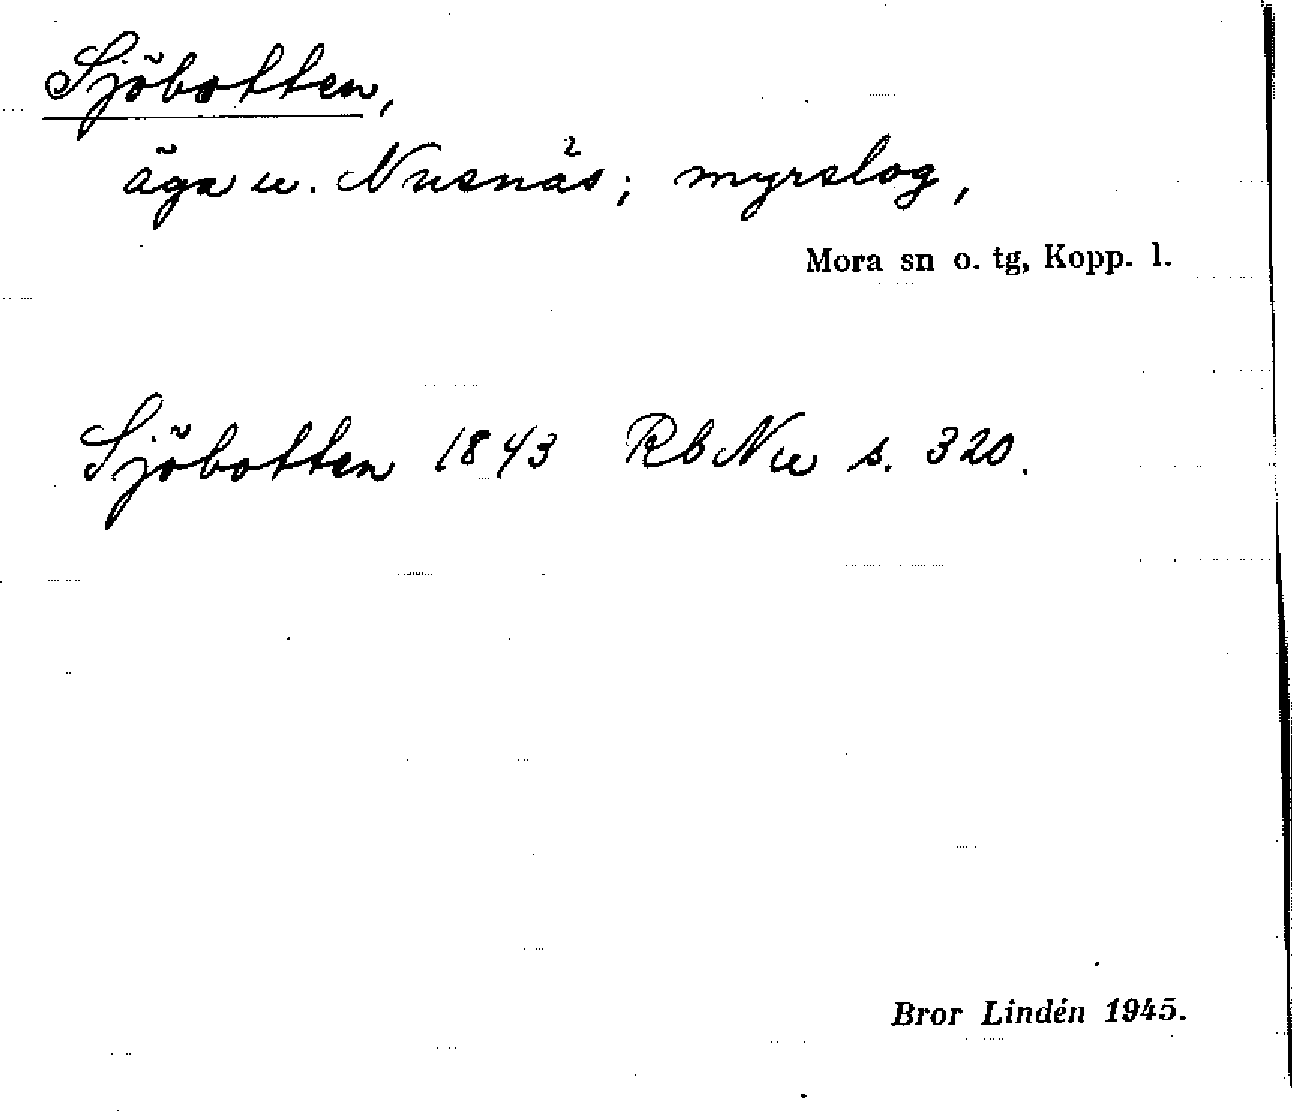 Sjöbotten,
äga u. Nusnäs; myrslog,
Mora sn o. tg, Kopp. l.
Sjöbotten 1843 RbNu s. 320.
Bror Lindén 1945.